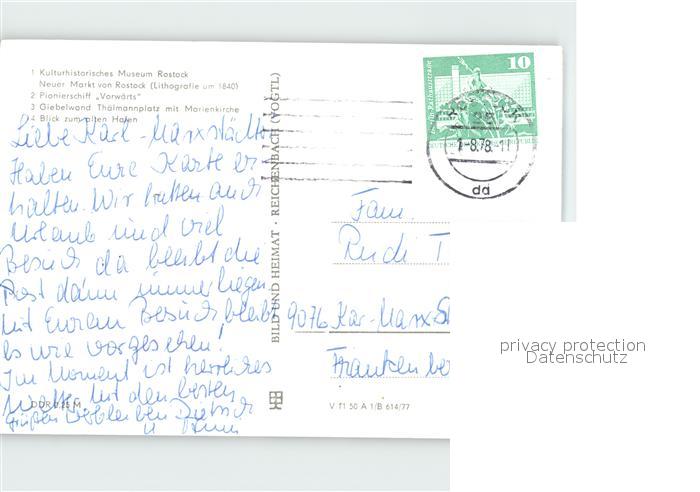 1 Kulturhistorisches Museum Rostock
Neuer Markt von Rostock (Lithografie um 1840)
2 Pionierschiff „Vorwärts"
3 Giebelwand Thälmannplatz mit Marienkirche
4 Blick zum alten Hafen
Liebe Karl-Marxstädter
Haben Eure Karte er
halten. Wir hatten auch
Urlaub und viel
Besuch da bleibt die
Post dann immer liegen.
Mit Eurem Besuch bleibt
es wie vorgesehen!
Im Moment ist herrliches
Wetter. Mit den besten
Grüßen verbleiben Dietrich
u.
DDR 0,25 M
BILD UND HEIMAT · REICHENBACH (VOGTL)
10
DEUTSCHE
-8.78.-11
dd
Fam.
Rudi T
9076 Kar-Marx-St
Frankenber
V 11 50 A 1/B 614/77
privacy protection
Datenschutz